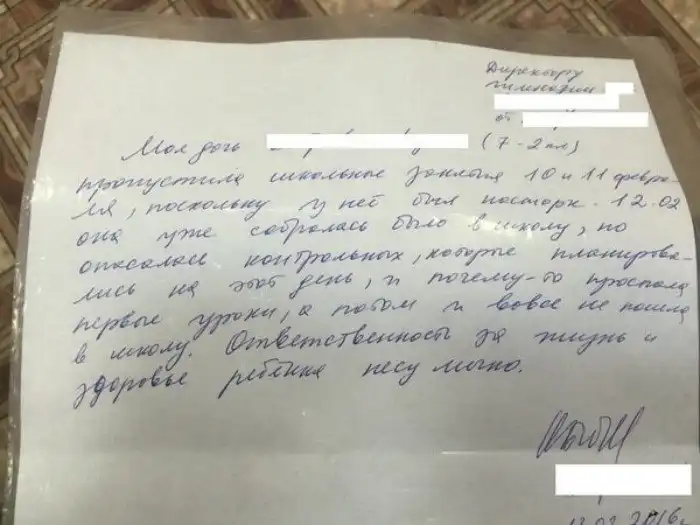 Директору
гимназии
от
Моя дочь (7-2 кл)
пропустила школьные занятия 10 и 11 февра-
ля, поскольку у неё был насморк. 12.02
она уже собралась было в школу, но
опасалась контрольных, которые планирова-
лись на этот день, и почему-то проспала
первые уроки, а потом и вовсе не пошла
в школу. Ответственность за жизнь и
здоровье ребёнка несу лично.
2016